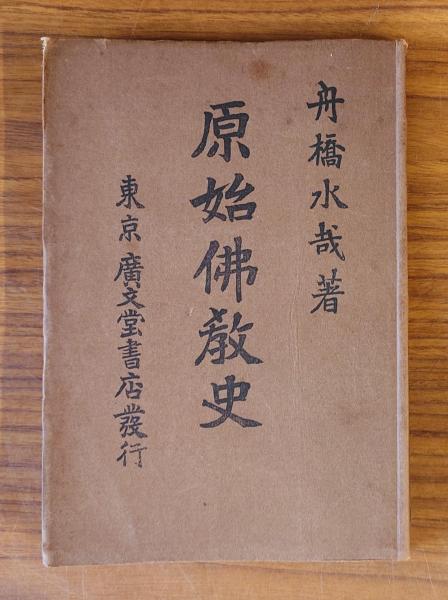 舟橋水哉著
原始佛教史
東京廣文堂書店發行